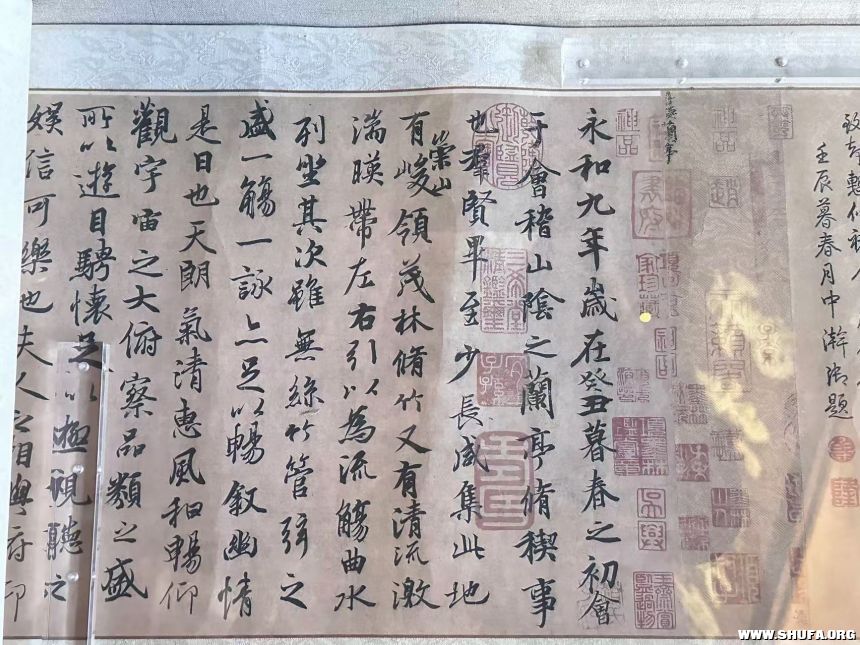 壬辰暮春月中澣御題
神品
天籟閣
神品
永和九年歲在癸丑暮春之初會
于會稽山陰之蘭亭脩稧事
也羣賢畢至少長咸集此地
崇山
有峻領茂林脩竹又有清流激
湍暎帶左右引以為流觴曲水
列坐其次雖無絲竹管弦之
盛一觴一詠亦足以暢敘幽情
是日也天朗氣清惠風和暢仰
觀宇宙之大俯察品類之盛
所以遊目騁懷足以極視聽之
娛信可樂也夫人之相與俯仰
WWW.SHUFA.ORG